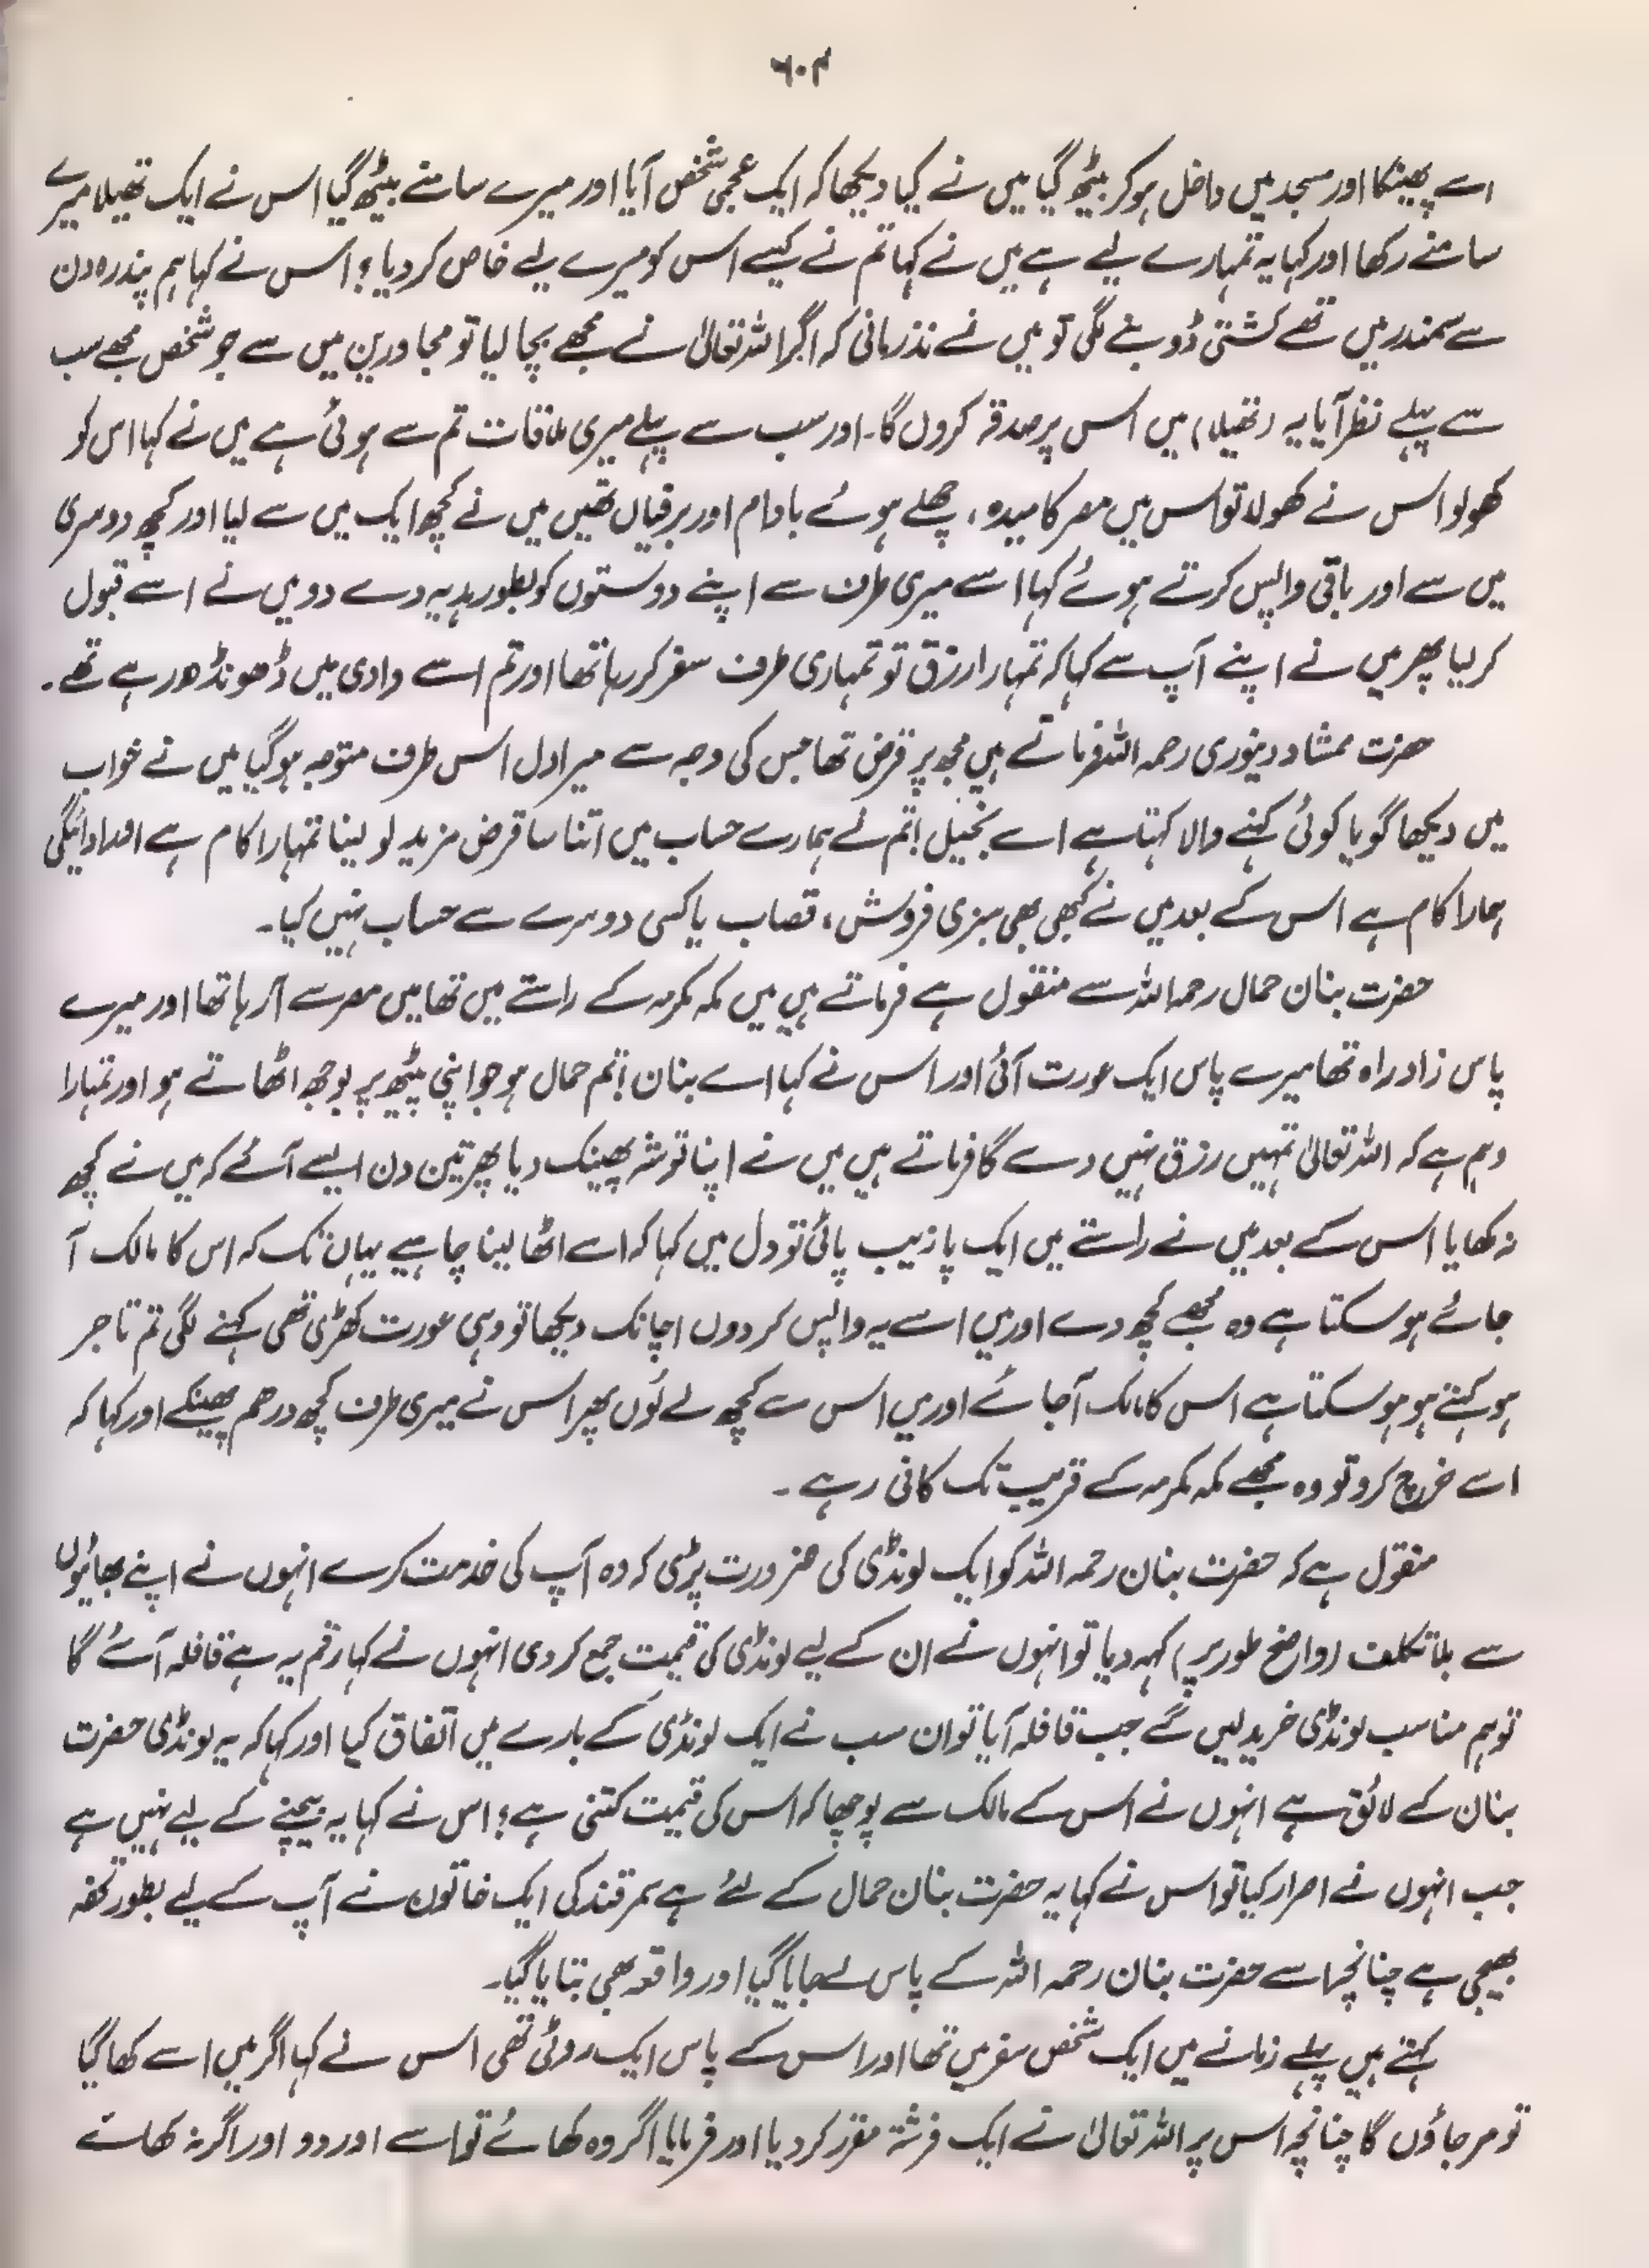 ۶۰۴
اسے پھینکا اور مسجد میں داخل ہو کر بیٹھ گیا میں نے کیا دیکھا کہ ایک عجمی شخص آیا اور میرے سامنے بیٹھ گیا اس نے ایک تھیلا میرے
سامنے رکھا اور کہا یہ تمہارے لیے ہے میں نے کہا تم نے کیسے اس کو میرے لیے خاص کر دیا؟ اس نے کہا ہم پندرہ دن
سے سمندر میں تھے کشتی ڈوبنے لگی تو میں نے نذر مانی کہ اگر اللہ تعالیٰ نے مجھے بچا لیا تو مجاورین میں سے جو شخص مجھے سب
سے پہلے نظر آیا یہ (تھیلا) میں اس پر صدقہ کروں گا۔ اور سب سے پہلے میری ملاقات تم سے ہوئی ہے میں نے کہا اس کو
کھولو اس نے کھولا تو اس میں مصر کا میدہ، چھلے ہوئے بادام اور برفیاں تھیں میں نے کچھ ایک میں سے لیا اور کچھ دوسری
میں سے اور باقی واپس کرتے ہوئے کہا اسے میری طرف سے اپنے دوستوں کو بطور ہدیہ دے دو میں نے اسے قبول
کر لیا پھر میں نے اپنے آپ سے کہا کہ تمہارا رزق تو تمہاری طرف سفر کر رہا تھا اور تم اسے وادی میں ڈھونڈھ رہے تھے۔
حضرت ممشاد دینوری رحمہ اللہ فرماتے ہیں مجھ پر قرض تھا جس کی وجہ سے میرا دل اس طرف متوجہ ہو گیا میں نے خواب
میں دیکھا گویا کوئی کہنے والا کہتا ہے اے بخیل! تم نے ہمارے حساب میں اتنا سا قرض مزید لو لینا تمہارا کام ہے اور ادائیگی
ہمارا کام ہے اس کے بعد میں نے کبھی بھی سبزی فروش، قصاب یا کسی دوسرے سے حساب نہیں کیا۔
حضرت بنان حمال رحمہ اللہ سے منقول ہے فرماتے ہیں میں مکہ مکرمہ کے راستے میں تھا میں مصر سے آ رہا تھا اور میرے
پاس زاد راہ تھا میرے پاس ایک عورت آئی اور اس نے کہا اے بنان! تم حمال ہو جو اپنی پیٹھ پر بوجھ اٹھاتے ہو اور تمہارا
وہم ہے کہ اللہ تعالیٰ تمہیں رزق نہیں دے گا فرماتے ہیں میں نے اپنا توشہ پھینک دیا پھر تین دن ایسے آئے کہ میں نے کچھ
نہ کھایا اس کے بعد میں نے راستے میں ایک پازیب پائی تو دل میں کہا کہ اسے اٹھا لینا چاہیے یہاں تک کہ اس کا مالک آ
جائے ہو سکتا ہے وہ مجھے کچھ دے اور میں اسے یہ واپس کر دوں اچانک دیکھا تو وہی عورت کھڑی تھی کہنے لگی تم تاجر
ہو کہتے ہو ہو سکتا ہے اس کا مالک آ جائے اور میں اس سے کچھ لے لوں پھر اس نے میری طرف کچھ درھم پھینکے اور کہا کہ
اسے خرچ کرو تو وہ مجھے مکہ مکرمہ کے قریب تک کافی رہے۔
منقول ہے کہ حضرت بنان رحمہ اللہ کو ایک لونڈی کی ضرورت پڑی کہ وہ آپ کی خدمت کرے انہوں نے اپنے بھائیوں
سے بلا تکلف (واضح طور پر) کہہ دیا تو انہوں نے ان کے لیے لونڈی کی قیمت جمع کر دی انہوں نے کہا رقم یہ ہے قافلہ آئے گا
تو ہم مناسب لونڈی خرید لیں گے جب قافلہ آیا تو ان سب نے ایک لونڈی کے بارے میں اتفاق کیا اور کہا کہ یہ لونڈی حضرت
بنان کے لائق ہے انہوں نے اس کے مالک سے پوچھا کہ اس کی قیمت کتنی ہے؟ اس نے کہا یہ بیچنے کے لیے نہیں ہے
جب انہوں نے اصرار کیا تو اس نے کہا یہ حضرت بنان حمال کے لئے ہے سمرقند کی ایک خاتون نے آپ کے لیے بطور تحفہ
بھیجی ہے چنانچہ اسے حضرت بنان رحمہ اللہ کے پاس لے جایا گیا اور واقعہ بھی بتایا گیا۔
کہتے ہیں پہلے زمانے میں ایک شخص سفر میں تھا اور اس کے پاس ایک روٹی تھی اس نے کہا اگر میں اسے کھا گیا
تو مر جاؤں گا چنانچہ اس پر اللہ تعالیٰ نے ایک فرشتہ مقرر کر دیا اور فرمایا اگر وہ کھائے تو اسے اور دو اور اگر نہ کھائے